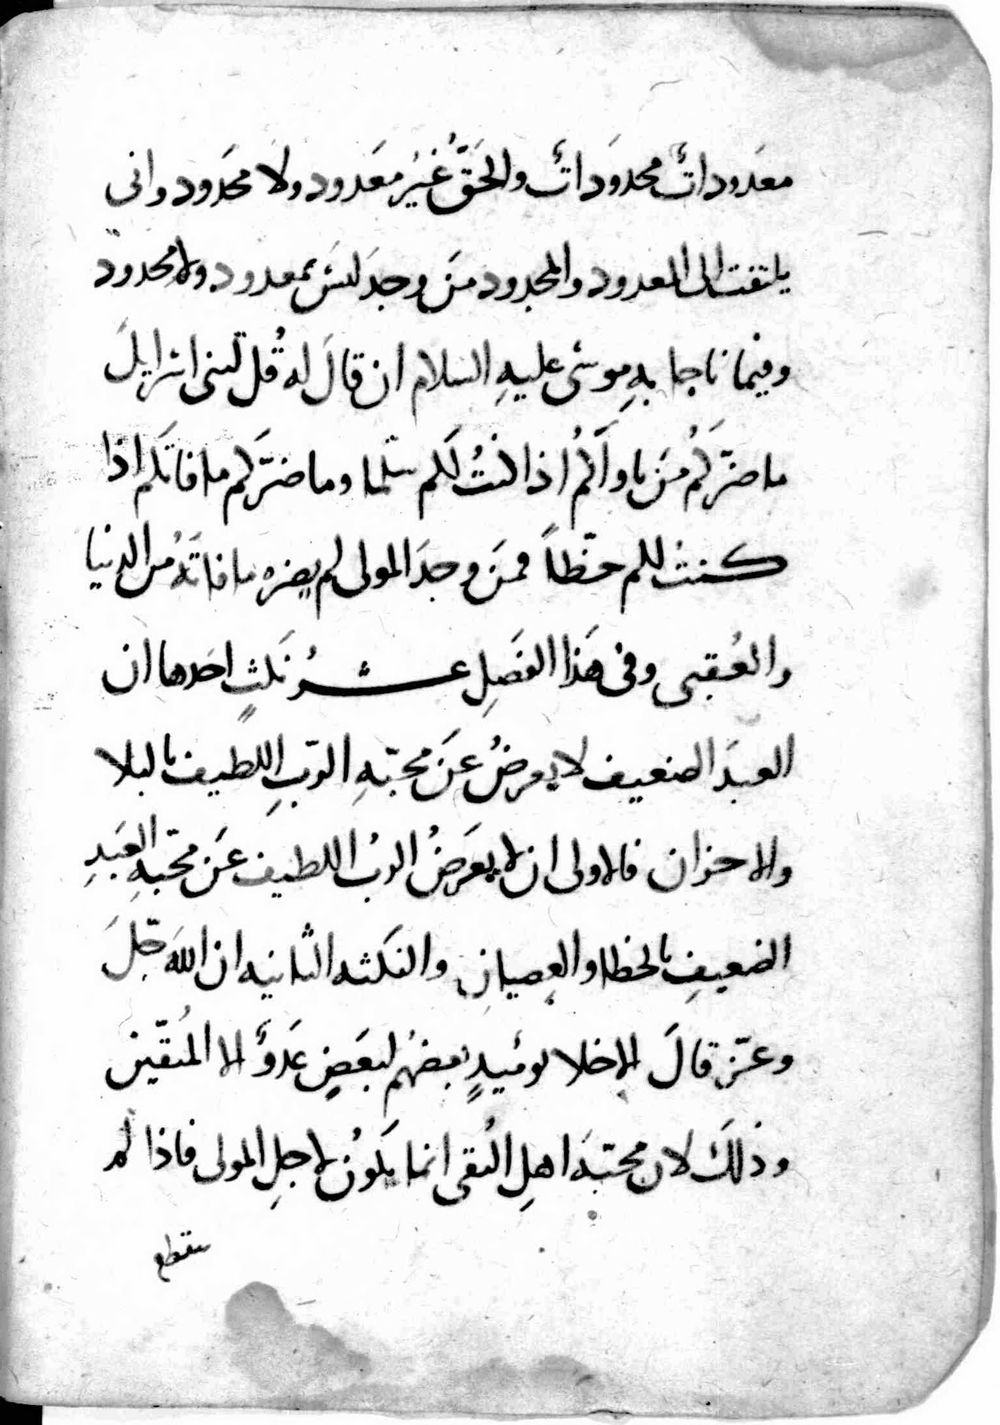 معدودات محدودات والحق غير معدود ولا محدود وانى
يلتفت الى المعدود والمحدود من وجد ليس بمعدود ولا محدود
وفيما ناجا به موسى عليه السلام ان قال له قل لبنى اسرايل
ما ضركم من ناواكم اذا كنت لكم سلما وما ضركم ما فاتكم اذا
كنت لكم حظا فمن وجد المولى لم يضره ما فاته من الدنيا
والعقبى وفى هذا الفصل عشر نكث احدها ان
العبد الضعيف لا يعرض عن محبته الرب اللطيف بالبلا
والاحزان فالاولى ان لا يعرض الرب اللطيف عن محبه العبد
الضعيف بالخطا والعصيان والنكثه الثانيه ان الله جل
وعز قال الاخلا يومئيد بعضهم لبعض عدو الا المتقين
وذلك لان محبته اهل التقى انما يكون لاجل المولى فاذا لم
ينقطع